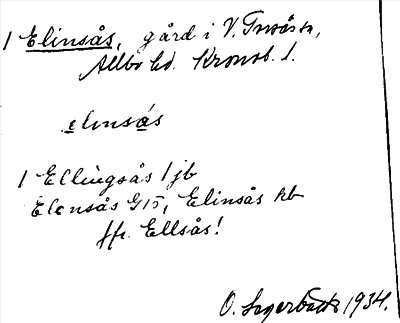 1 Elinsås, gård i V. Torsås sn,
Allbo hd. Kronob. l.
elensås
1 Ellingsås 1 jb
Elensås G15, Elinsås kb
jfr Ellsås!
O. Lagerbäck 1934.